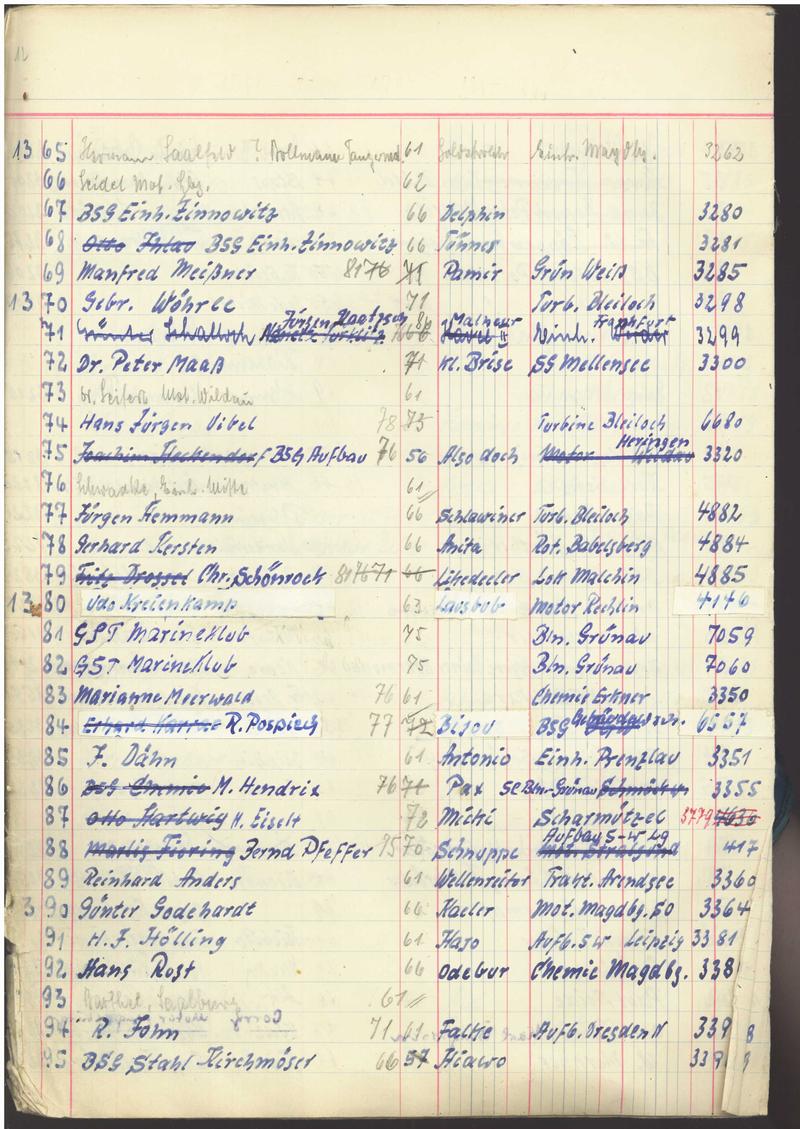 12
13 65 Hermann Saalfeld ? Bollmann Tangerm. 61 Einh. Magdbg. 3262
66 Seidel Mot. 62
67 BSG Einh. Zinnowitz 66 Delphin 3280
68 Otto BSG Einh. Zinnowitz 66 Tünnes 3281
69 Manfred Meißner 81 76 71 Pamir Grün Weiß 3285
13 70 Gebr. Wöhrle 71 Turb. Bleiloch 3298
71 Günter Jürgen Malheur Havel II Frankfurt 3299
72 Dr. Peter Maaß 71 Kl. Brise SG Mellensee 3300
73 Dr. Seifert Mot. Wildau 61
74 Hans Jürgen Vibel 78 73 Turbine Bleiloch 6680
75 Joachim Heckendorf BSG Aufbau 76 56 Also doch Motor Wildau Heringen 3320
76 61
77 Jürgen Hemmann 66 Schlawiner Turb. Bleiloch 4882
78 Gerhard Kersten 66 Anita Rot. Babelsberg 4884
79 Fritz Drossel Chr. Schönrock 81 76 71 66 Likedeeler Lok Malchin 4885
13 80 Udo Kreienkamp 63 Lausbub Motor Rechlin 4146
81 GST Marineklub 75 Bln. Grünau 7059
82 GST Marineklub 75 Bln. Grünau 7060
83 Marianne Meerwald 76 61 Chemie Erkner 3350
84 Erhard Karras R. Pospiech 77 72 Bijou BSG 6557
85 F. Dähn 61 Antonio Einh. Prenzlau 3351
86 M. Hendrix 76 71 Pax SC Bln-Grünau Schmöckw. 3355
87 Otto Hartwig H. Eiselt 72 Michi Scharmützel 3779
88 Marlis Fiering Bernd Pfeffer 75 70 Schnuppe Aufbau S-W Lg Mot. Stralsund 417
89 Reinhard Anders 61 Wellenreiter Trakt. Arendsee 3360
3 90 Günter Godehardt 66 Kaeler Mot. Magdbg. SO 3364
91 H. F. Hölling 61 Hajo Aufb. SW Leipzig 3381
92 Hans Rost 66 Odebur Chemie Magdbg. 338
93 Barthel, Saalburg 61
94 R. John 71 61 Falke Aufb. Dresden N 339 8
95 BSG Stahl Kirchmöser 66 57 Hiawo 339 9